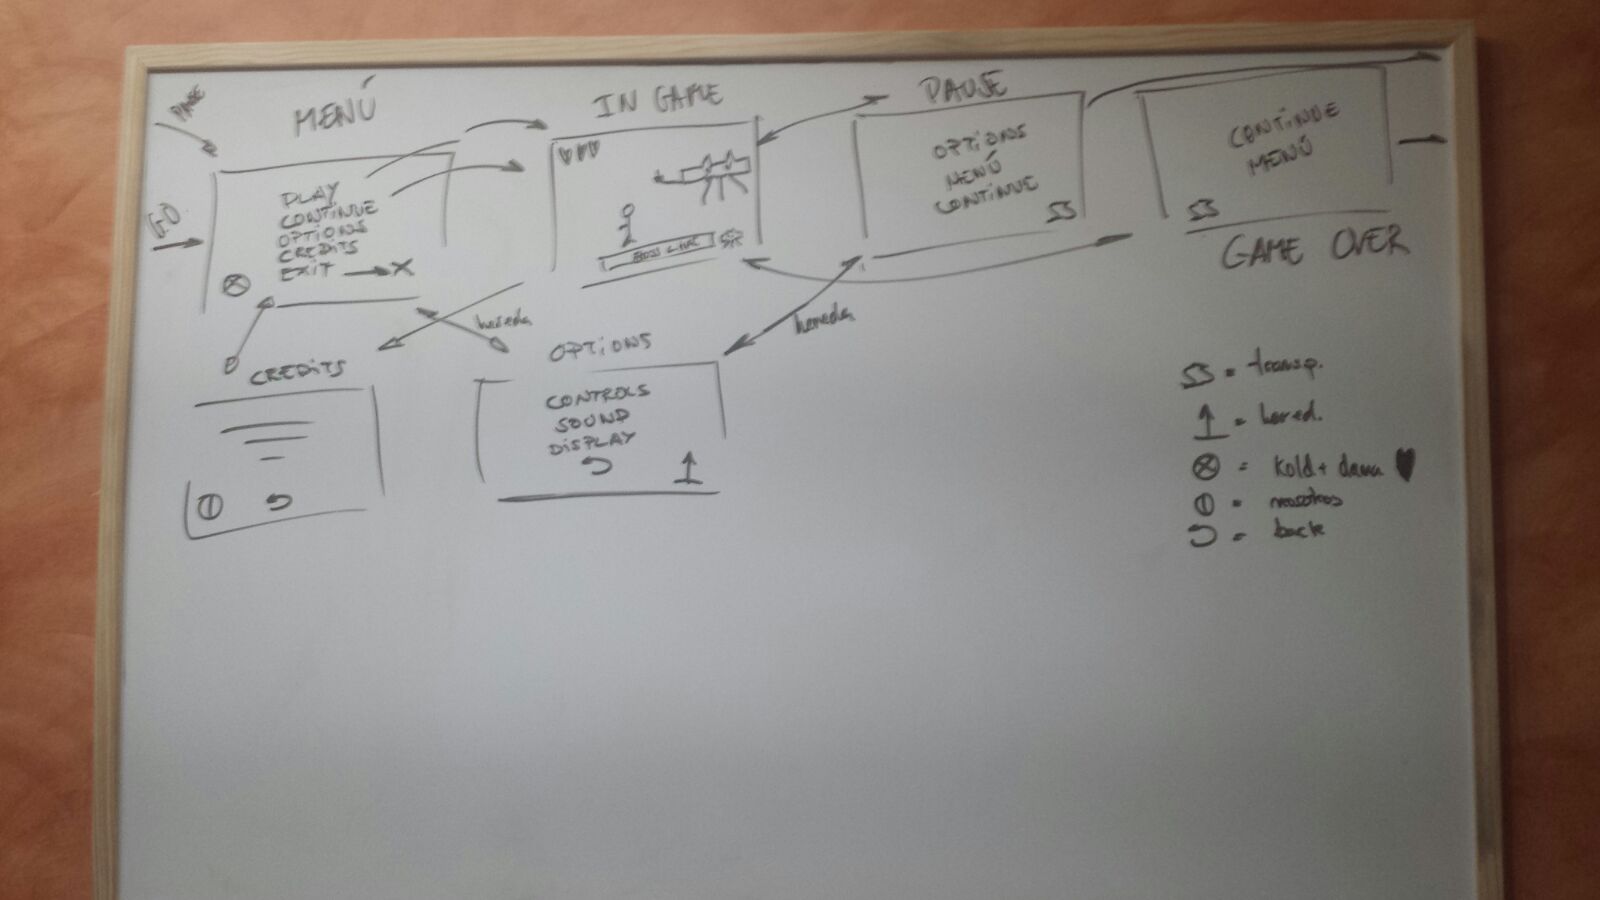 PAUSE
MENÚ
GO
PLAY
CONTINUE
OPTIONS
CREDITS
EXIT → X
IN GAME
BOSS LIFE
PAUSE
OPTIONS
MENÚ
CONTINUE
CONTINUE
MENÚ
GAME OVER
hereda
hereda
CREDITS
OPTIONS
CONTROLS
SOUND
DISPLAY
= transp.
= hered.
= kold + dama ♥
= nosotros
= back